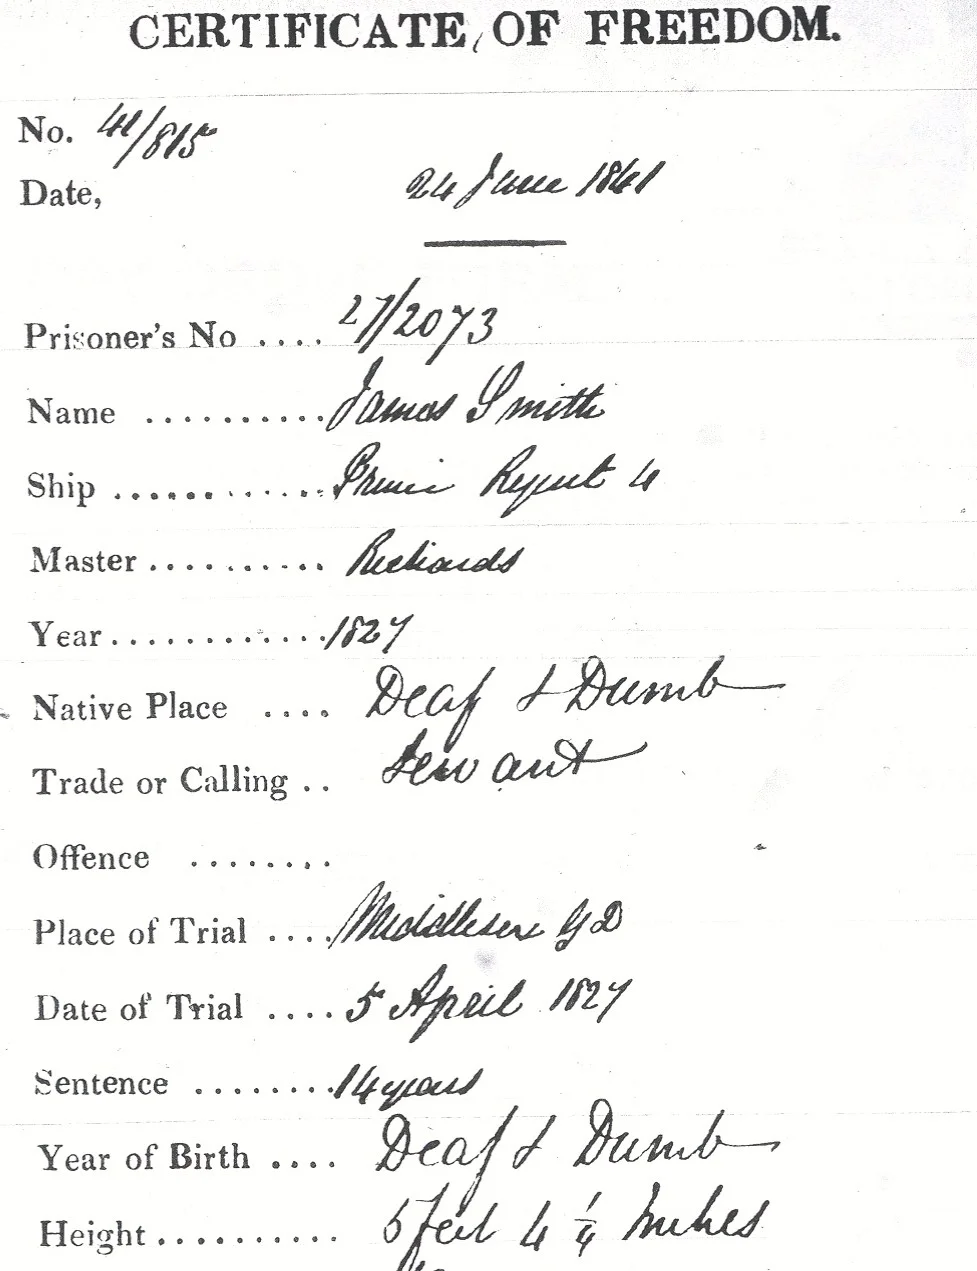 CERTIFICATE, OF FREEDOM.
No. 41/815
Date, 24 June 1841
Prisoner's No .... 27/2073
Name .......... James Smith
Ship ............ Prince Regent 4
Master .......... Richards
Year ............ 1827
Native Place .... Deaf & Dumb
Trade or Calling .. Servant
Offence ........
Place of Trial .... Middlesex G D
Date of Trial .... 5 April 1827
Sentence ........ 14 years
Year of Birth .... Deaf & Dumb
Height .......... 5 feet 4 1/4 Inches